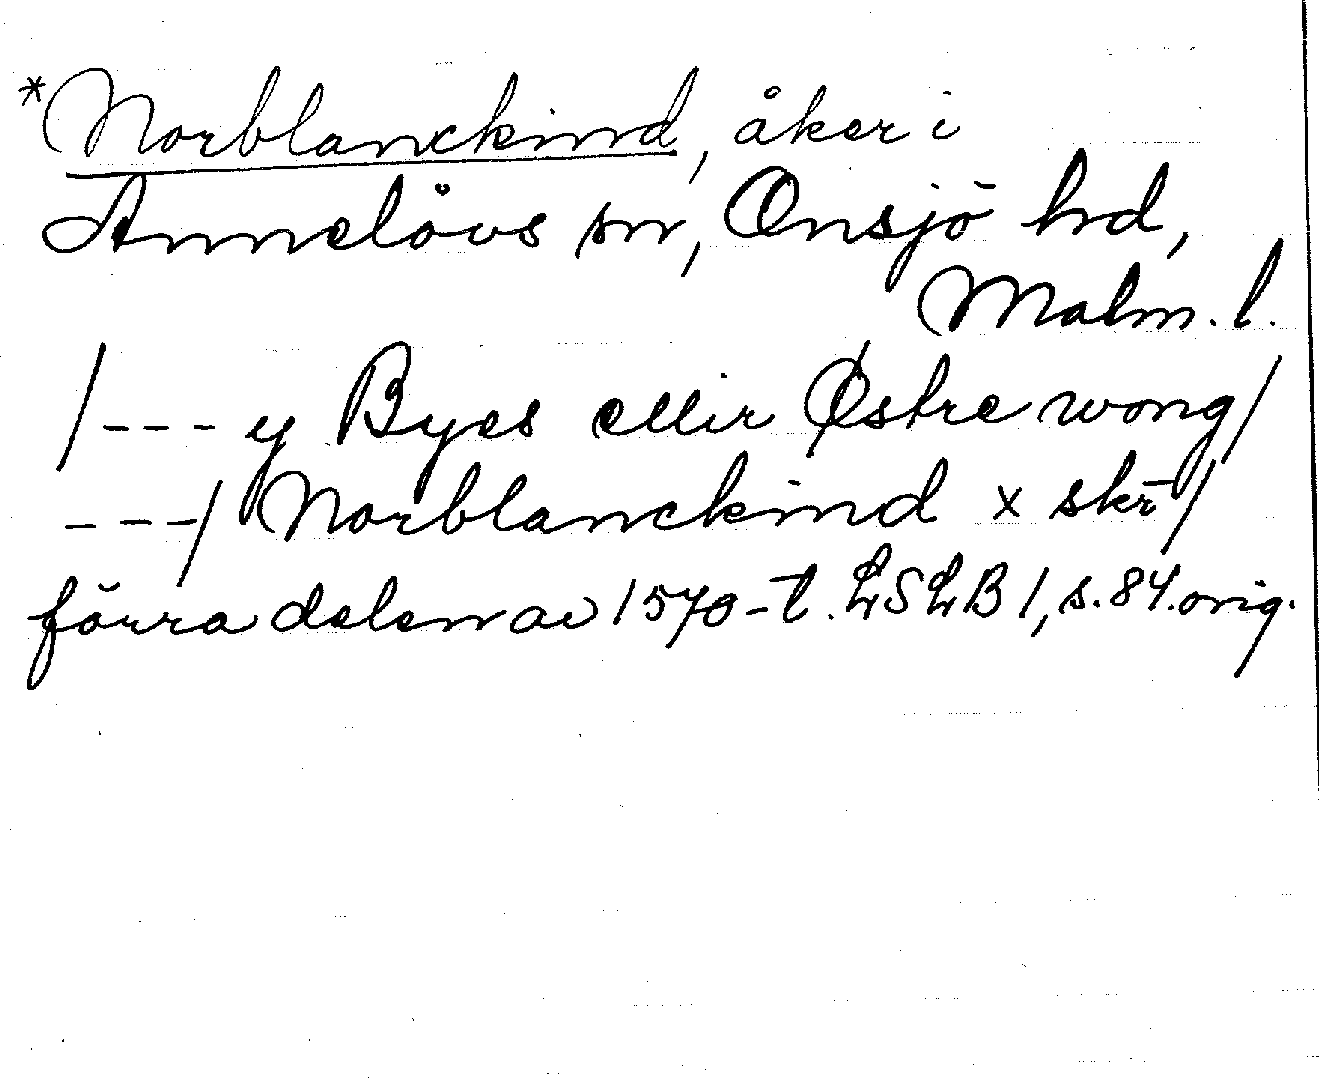 *Norblanckind, åker i
Annelövs sn, Onsjö hd,
Malm. l.
/--- y Byes ellir Østre wong/
---/ Norblanckind x skr̄/
förra delen av 1570-t. LSLB 1, s. 84. orig.